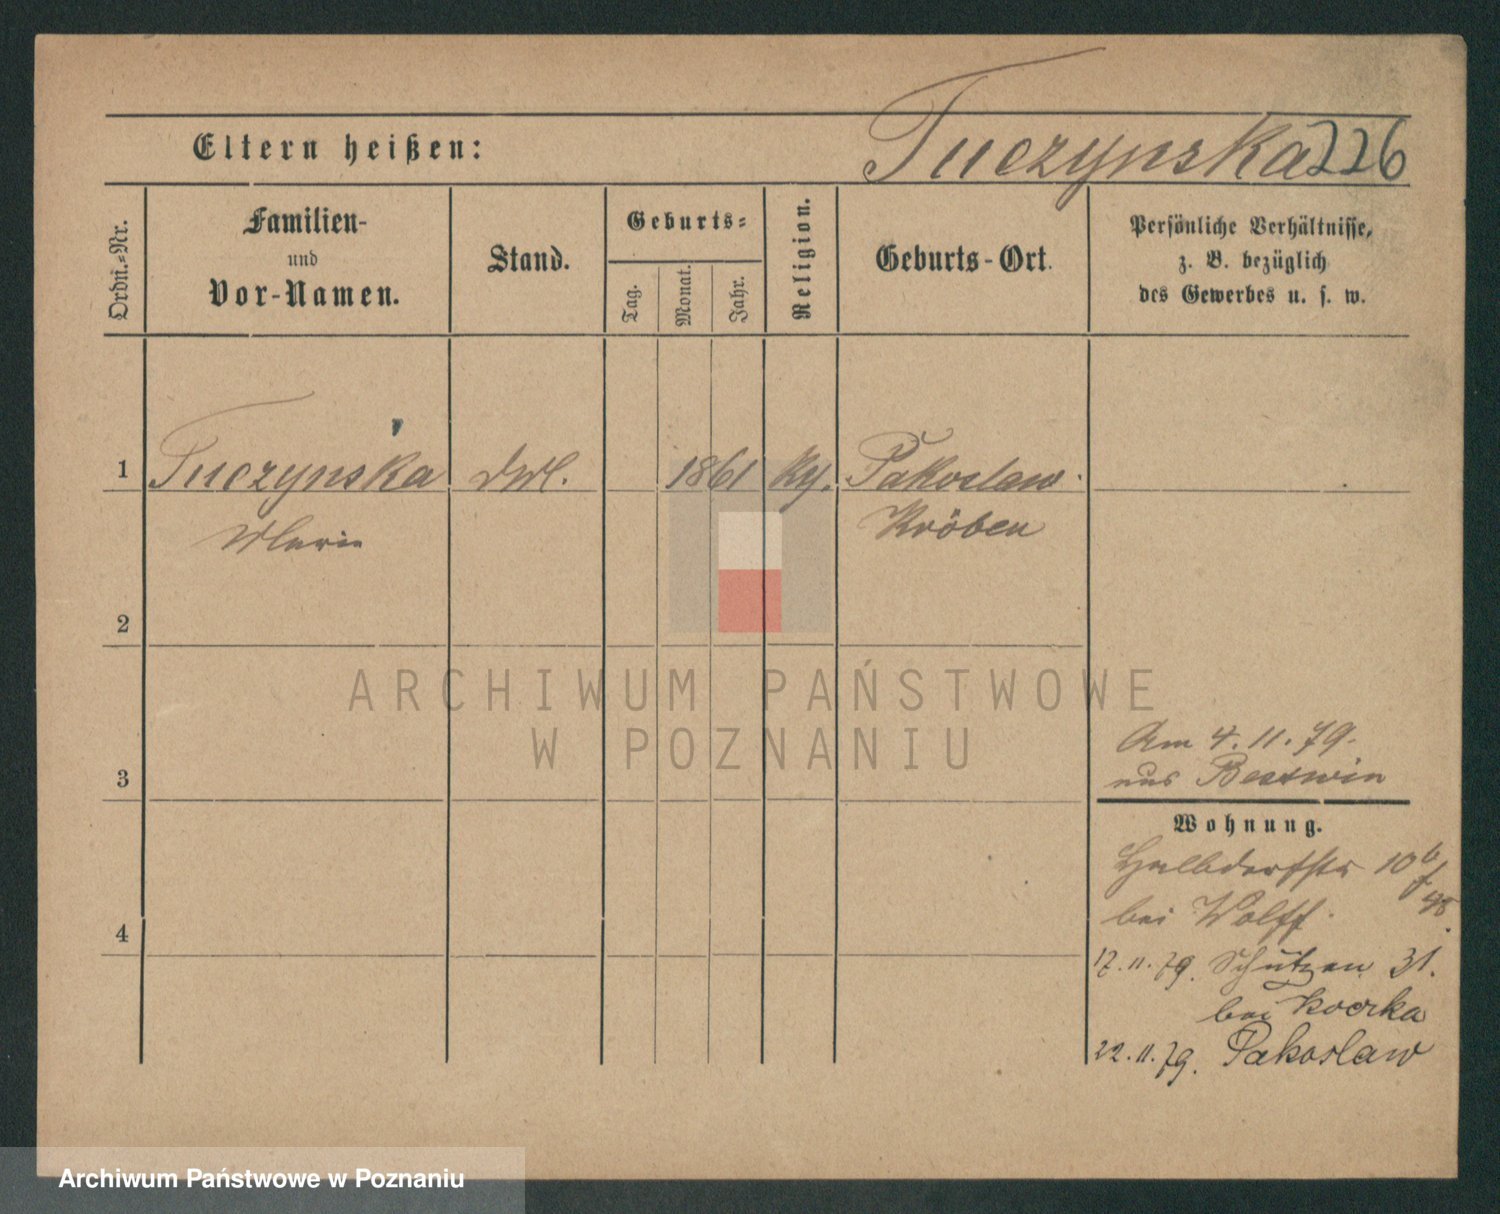 Eltern heißen: Tuczynska 226
Ordn.-Nr.
Familien-
und
Vor-Namen.
Stand.
Geburts-
Tag.
Monat.
Jahr.
Religion.
Geburts-Ort.
Persönliche Verhältnisse,
z. B. bezüglich
des Gewerbes u. s. w.
1 Tuczynska 1861 Pakoslaw
Marie Kröben
2
ARCHIWUM PAŃSTWOWE
W POZNANIU
3
4
Am 4. 11. 79.
aus
Wohnung.
Halbdorfstr 10
bei Wolff.
17. 11. 79. Schützen 31.
bei
22. 11. 79. Pakoslaw
Archiwum Państwowe w Poznaniu